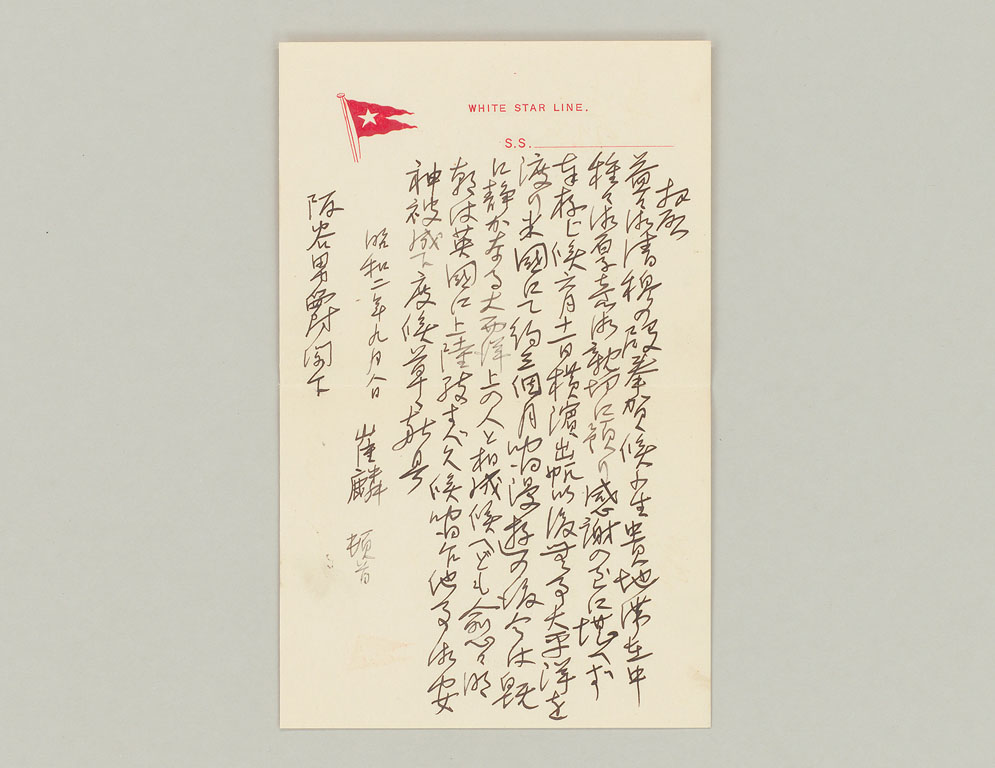 WHITE STAR LINE.
S.S.
拝啓
益々御清穆の段奉賀候小生貴地滞在中
種々御厚意御親切に預り感謝の至に堪へず
奉存上候六月十一日横濱出帆以後無事太平洋を
渡り米國にて約三個月間漫遊の後今は既
に静かなる大西洋上の人と相成候へども愈々明
朝は英國に上陸致すべく候間乍他事御安
神被成下度候草々敬具
昭和二年九月 日
崔麟 頓首
阪谷男爵閣下